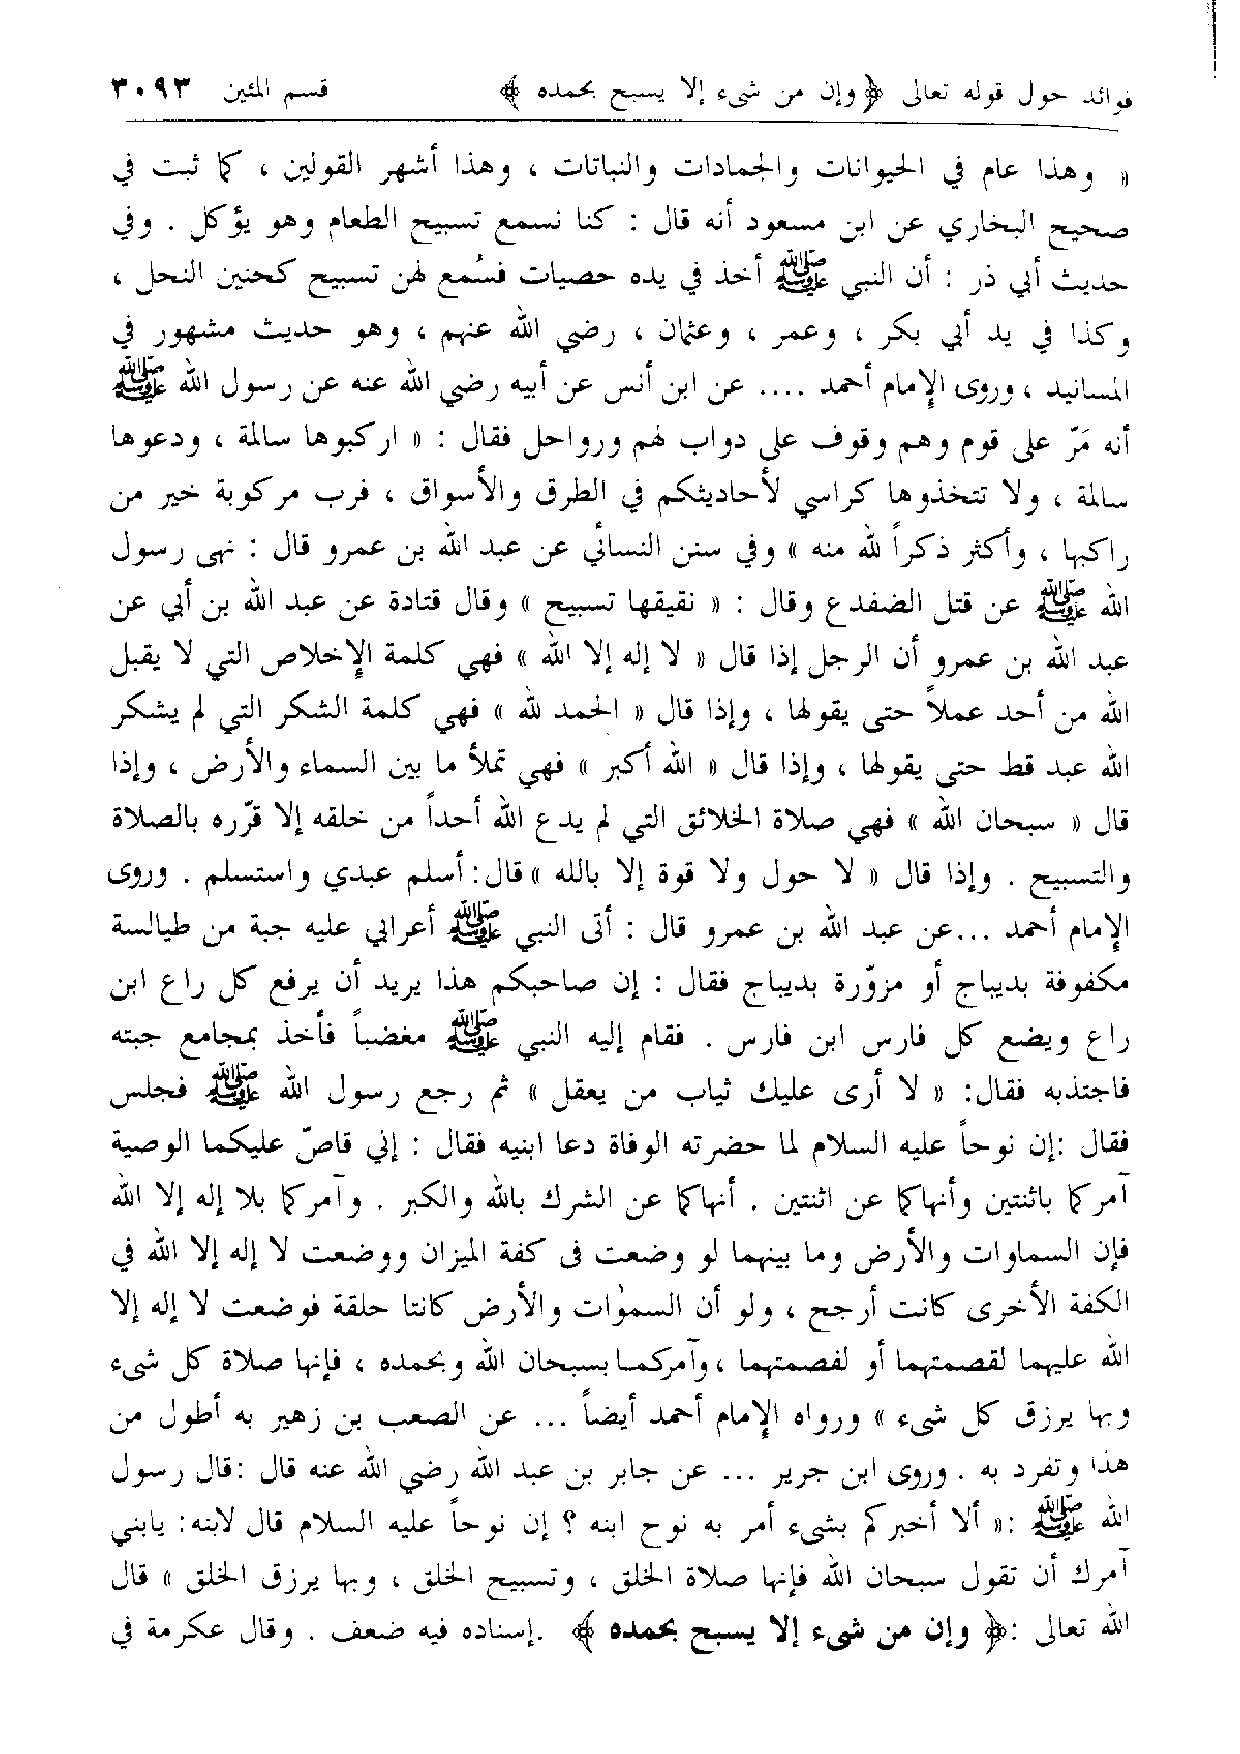 فوائد حول قوله تعالى ﴿ وإن من شيء إلا يسبح بحمده ﴾ قسم المئين ٣٠٩٣
« وهذا عام في الحيوانات والجمادات والنباتات ، وهذا أشهر القولين ، كما ثبت في
صحيح البخاري عن ابن مسعود أنه قال : كنا نسمع تسبيح الطعام وهو يؤكل . وفي
حديث أبي ذر : أن النبي ﷺ أخذ في يده حصيات فسُمع لهن تسبيح كحنين النحل ،
وكذا في يد أبي بكر ، وعمر ، وعثمان ، رضي الله عنهم ، وهو حديث مشهور في
المسانيد ، وروى الإمام أحمد .... عن ابن أنس عن أبيه رضي الله عنه عن رسول الله ﷺ
أنه مَرّ على قوم وهم وقوف على دواب لهم ورواحل فقال : « اركبوها سالمة ، ودعوها
سالمة ، ولا تتخذوها كراسي لأحاديثكم في الطرق والأسواق ، فرب مركوبة خير من
راكبها ، وأكثر ذكراً لله منه » وفي سنن النسائي عن عبد الله بن عمرو قال : نهى رسول
الله ﷺ عن قتل الضفدع وقال : « نقيقها تسبيح » وقال قتادة عن عبد الله بن أبي عن
عبد الله بن عمرو أن الرجل إذا قال « لا إله إلا الله » فهي كلمة الإخلاص التي لا يقبل
الله من أحد عملاً حتى يقولها ، وإذا قال « الحمد لله » فهي كلمة الشكر التي لم يشكر
الله عبد قط حتى يقولها ، وإذا قال « الله أكبر » فهي تملأ ما بين السماء والأرض ، وإذا
قال « سبحان الله » فهي صلاة الخلائق التي لم يدع الله أحداً من خلقه إلا قرّره بالصلاة
والتسبيح . وإذا قال « لا حول ولا قوة إلا بالله » قال : أسلم عبدي واستسلم . وروى
الإمام أحمد ... عن عبد الله بن عمرو قال : أتى النبي ﷺ أعرابي عليه جبة من طيالسة
مكفوفة بديباج أو مزوّرة بديباج فقال : إن صاحبكم هذا يريد أن يرفع كل راع ابن
راع ويضع كل فارس ابن فارس . فقام إليه النبي ﷺ مغضباً فأخذ بمجامع جبته
فاجتذبه فقال: « لا أرى عليك ثياب من يعقل » ثم رجع رسول الله ﷺ فجلس
فقال :إن نوحاً عليه السلام لما حضرته الوفاة دعا ابنيه فقال : إني قاصّ عليكما الوصية
آمركما باثنتين وأنهاكما عن اثنتين . أنهاكما عن الشرك بالله والكبر . وآمركما بلا إله إلا الله
فإن السماوات والأرض وما بينهما لو وضعت في كفة الميزان ووضعت لا إله إلا الله في
الكفة الأخرى كانت أرجح ، ولو أن السموات والأرض كانتا حلقة فوضعت لا إله إلا
الله عليهما لقصمتهما أو لفصمتهما ، وآمركما بسبحان الله وبحمده ، فإنها صلاة كل شيء
وبها يرزق كل شيء » ورواه الإمام أحمد أيضاً ... عن الصعب بن زهير به أطول من
هذا وتفرد به . وروى ابن جرير ... عن جابر بن عبد الله رضي الله عنه قال :قال رسول
الله ﷺ :« ألا أخبركم بشيء أمر به نوح ابنه ؟ إن نوحاً عليه السلام قال لابنه: يابني
آمرك أن تقول سبحان الله فإنها صلاة الخلق ، وتسبيح الخلق ، وبها يرزق الخلق » قال
الله تعالى :﴿ وإن من شيء إلا يسبح بحمده ﴾ .إسناده فيه ضعف . وقال عكرمة في